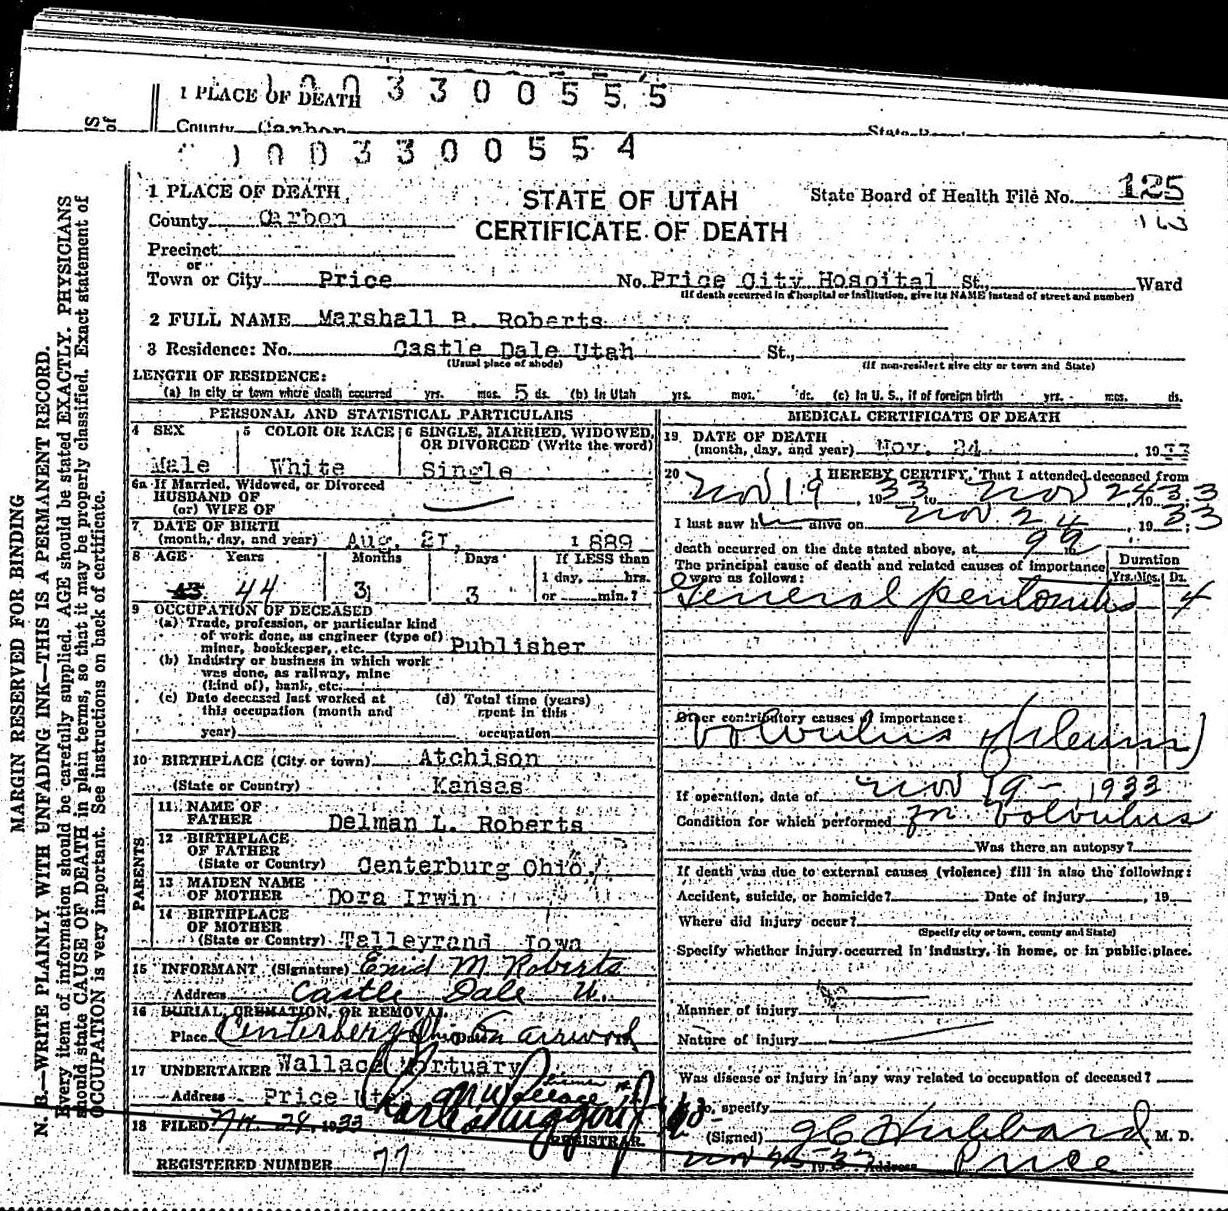 1 PLACE OF DEATH
1003300555
County Carbon
1003300554
1 PLACE OF DEATH
STATE OF UTAH
CERTIFICATE OF DEATH
State Board of Health File No. 125
163
County Carbon
Precinct
or
Town or City Price No. Price City Hospital St., Ward
(If death occurred in a hospital or institution, give its NAME instead of street and number)
2 FULL NAME Marshall B. Roberts
3 Residence: No. Castle Dale Utah St.,
(Usual place of abode) (If non-resident give city or town and State)
LENGTH OF RESIDENCE:
(a) In city or town where death occurred yrs. mos. 5 ds. (b) In Utah yrs. mos. ds. (c) In U. S., if of foreign birth yrs. mos. ds.
PERSONAL AND STATISTICAL PARTICULARS
4 SEX 5 COLOR OR RACE 6 SINGLE, MARRIED, WIDOWED, OR DIVORCED (Write the word)
Male White Single
6a If Married, Widowed, or Divorced
HUSBAND OF
(or) WIFE OF
7 DATE OF BIRTH
(month, day, and year) Aug. 21, 1889
8 AGE Years Months Days If LESS than
1 day, hrs.
43 44 3 3 or min.?
9 OCCUPATION OF DECEASED
(a) Trade, profession, or particular kind
of work done, as engineer (type of)
miner, bookkeeper, etc. Publisher
(b) Industry or business in which work
was done, as railway, mine
(kind of), bank, etc.
(c) Date deceased last worked at (d) Total time (years)
this occupation (month and spent in this
year) occupation
10 BIRTHPLACE (City or town) Atchison
(State or Country) Kansas
PARENTS
11 NAME OF
FATHER Delman L. Roberts
12 BIRTHPLACE
OF FATHER
(State or Country) Centerburg Ohio.
13 MAIDEN NAME
OF MOTHER Dora Irwin
14 BIRTHPLACE
OF MOTHER
(State or Country) Talleyrand Iowa
15 INFORMANT (Signature) Enid M Roberts
Address Castle Dale U.
16 BURIAL, CREMATION, OR REMOVAL
Place Centerberg Ohio
17 UNDERTAKER Wallace Mortuary
Address Price Utah
18 FILED 24, 1933
REGISTRAR
REGISTERED NUMBER 77
MEDICAL CERTIFICATE OF DEATH
19 DATE OF DEATH
(month, day, and year) Nov. 24 , 1933
20 I HEREBY CERTIFY, That I attended deceased from
Nov 19 , 1933 to Nov 24 , 1933
I last saw h alive on Nov 24 , 1933
death occurred on the date stated above, at
The principal cause of death and related causes of importance
were as follows:
Duration
Yrs. Mos. Ds.
General peritonitis 4
Other contributory causes of importance:
Volvulus of (ileum)
If operation, date of Nov 19 - 1933
Condition for which performed for Volvulus
Was there an autopsy?
If death was due to external causes (violence) fill in also the following:
Accident, suicide, or homicide? Date of injury , 19
Where did injury occur?
(Specify city or town, county and State)
Specify whether injury occurred in industry, in home, or in public place.
Manner of injury
Nature of injury
Was disease or injury in any way related to occupation of deceased?
If so, specify
(Signed) Hubbard M. D.
Address Price
MARGIN RESERVED FOR BINDING
N. B.—WRITE PLAINLY WITH UNFADING INK—THIS IS A PERMANENT RECORD.
Every item of information should be carefully supplied. AGE should be stated EXACTLY. PHYSICIANS
should state CAUSE OF DEATH in plain terms, so that it may be properly classified. Exact statement of
OCCUPATION is very important. See instructions on back of certificate.